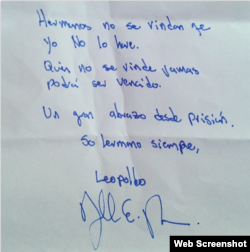 Hermanos no se rindan qe
yo No lo hare.
Quien no se rinde jamas
podrá ser vencido.
Un gran abrazo desde prisión.
Su hermano siempre,
Leopoldo
Web Screenshot